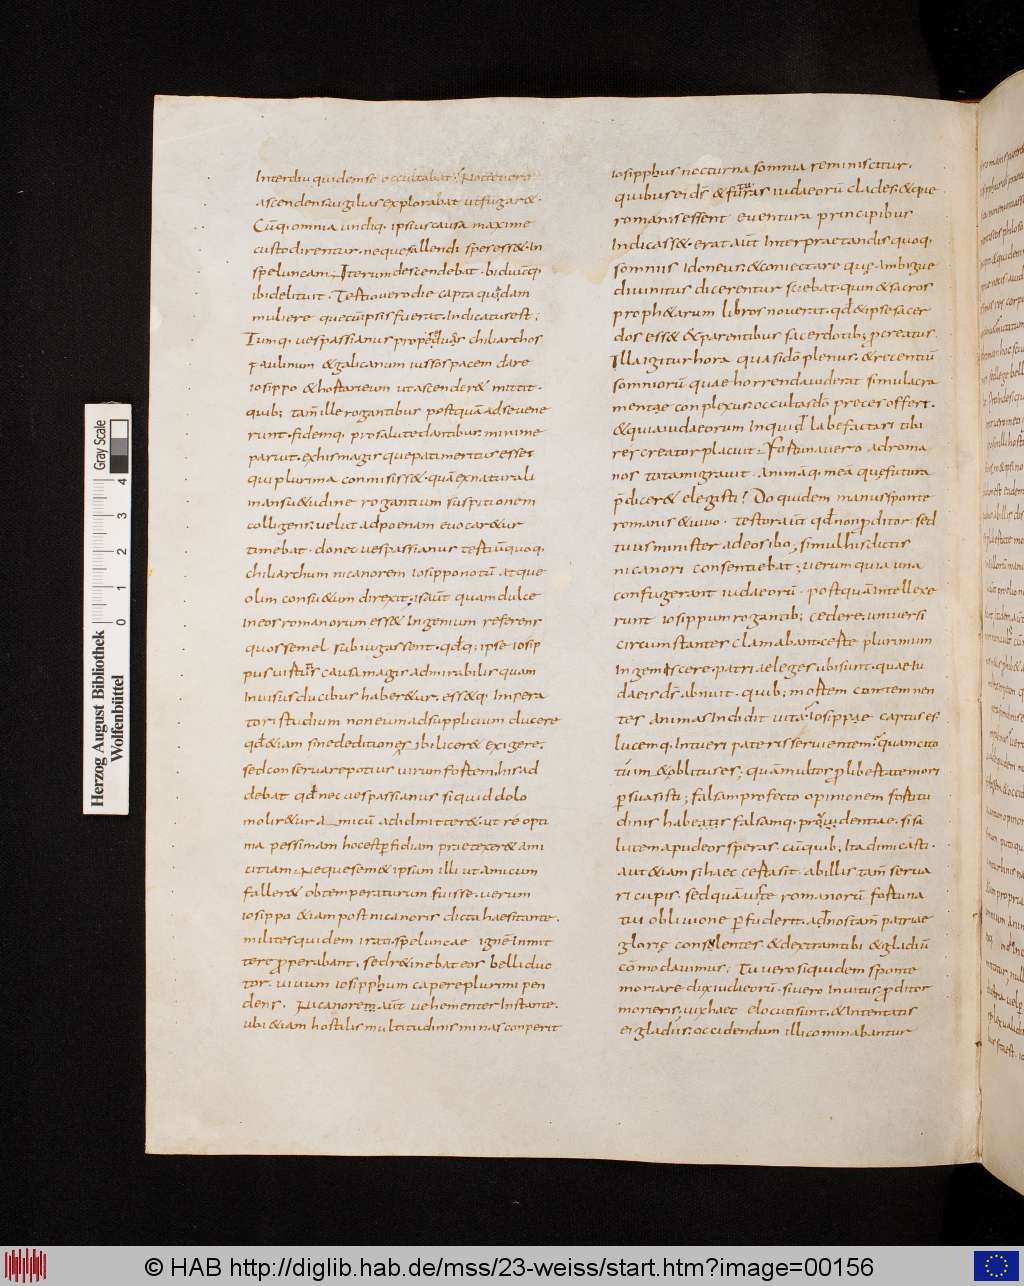 Interdiu quidem se occultabat. Nocte vero
ascendens uigilias explorabat ut fugar&.
Cūq. omnia undiq. ipsius causa maxime
custodirentur. neque fallendi spes ess&. In
speluncam Iterum descendebat. biduūq.
ibi delituit. Tertio uero die capta quadam
muliere que cū ipsis fuerat. Indicatus est;
Tumq. uespassianus propere duos chiliarchos
paulinum &galicanum iussos pacem dare
iosippo &hortari eum ut ascender& mittit.
quib; tam̄ ille rogantibus postquā ad se uene
runt. fidemq. pro salute dantibus. minime
paruit. ex his magis que pati meritus esset
qui plurima conmisiss& quā ex naturali
mansu&udine rogantium suspitionem
colligens. uelut ad poenam euocar&ur
timebat. donec uespassianus tertiū quoq.
chiliarchum nicanorem iosippo notū atque
olim consu&um direxit; is aūt quam dulce
In eos romanorum ess& Ingenium referens
quos semel subiugassent. qd̄q; ipse iosip
pus uirtutis causa magis admirabilis quam
Inuisus ducibus haber&ur. ess&q. Impera
tori studium non eum ad supplicium ducere
qd̄ &iam sine deditione si bi licer& exigere.
sed conseruare potius uirum fortem. Ins ad
debat qd̄ nec uespassianus si quid dolo
molir&ur Amicū ad id mitter&. ut re opti
ma pessimam hoc est p̄fidiam pra&exer& ami
citiam. Neque semel &ipsum illi ut amicum
faller& obtemperaturum fuisse. uerum
iosippo &iam post nicanoris dicta haesitante.
milites quidem irati speluncae ignē Inmit
tere properabant. sed r&inebat eos belli duc
tor. uiuum iosipphum capere plurimi pen
dens. Nicanorem aūt uehementer Instante.
ubi &iam hostilis multitudinis minas conperit
iosipphus nocturna somnia reminiscitur.
quibus ei ds̄ &futuras iudaeorū clades. &que
romanis essent euentura principibus
Indicass&. erat aūt Interpraetandis quoq.
somniis Idoneus. &coniectare quę ambigue
diuinitus dicerentur sciebat. quin &sacros
proph&arum libros nouerat. qd̄ &ipse sacer
dos ess& &parentibus sacerdotib; pcreatus.
Illa igitur hora quasi dō plenus. &recentiū
somniorū quae horrenda uiderat simulacra
mentae conplexus. occultas dō preces offert.
&quia iudaeorum Inquid labefactari tibi
res creator placuit. Fortuna uero ad roma
nos tota migrauit. Animāq. meā quę futura
p̄dicer& elegisti? Do quidem manus sponte
romanis &uiuo. testor aūt qd̄ non p̄ditor. sed
tuus minister adeos ibo; simul his dictis
nicanori consentiebat; uerum qui a una
confugerant iudaeorū. postquā Intellexe
runt iosippum rogantib; cedere. uniuersi
circumstantes clamabant. certe plurimum
Ingemescere. patriae leges ubi sunt. quae iu
daeis ds̄ abnuit. quib; mortem contemnen
tes animas Indidit uitae. iosippae captus es
lucemq. Intueri pateris seruientem? quam cito
tui &oblitus es; quā multos p̄ libertate mori
p̄suasisti; falsam profecto opinionem fortitu
dinis habeas falsamq. prudentiae. si sa
lutem apud eos speras. cū quib; Ita dimicasti.
aut &iam si haec certa sit. ab illis tam̄ serua
ri cupis. sed quāuis te romanorū fortuna
tui obliuione p̄fuderit. ad nos tam̄ patriae
glorię consulentes &dextram tibi &gladiū
cōmodauimus; Tu uero siquidem sponte
moriare dux iudaeorū. si uero Inuitus p̄ditor
morieris. uix haec elocuti sunt. &Intentatis
ei gladiis. occidendum illi cominabantur
Herzog August Bibliothek
Wolfenbüttel
Gray Scale
0 1 2 3 4
© HAB http://diglib.hab.de/mss/23-weiss/start.htm?image=00156